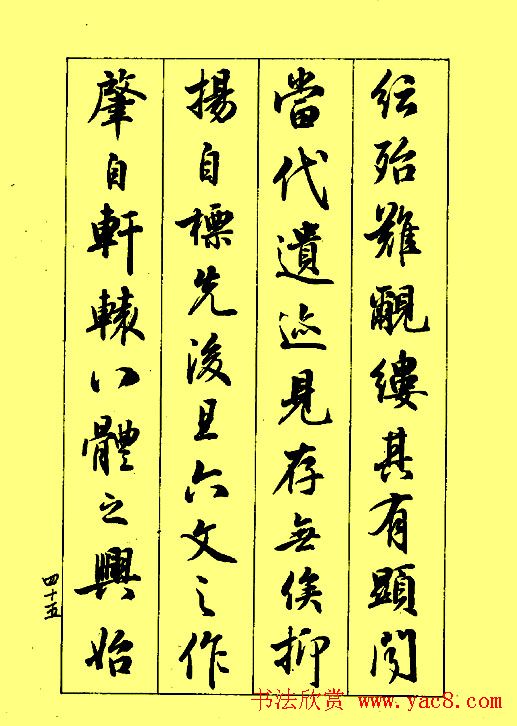 紜殆難覼縷其有顯聞
當代遺迹見存無俟抑
揚自標先後且六文之作
肇自軒轅八體之興始
四十五
书法欣赏 www.yac8.com